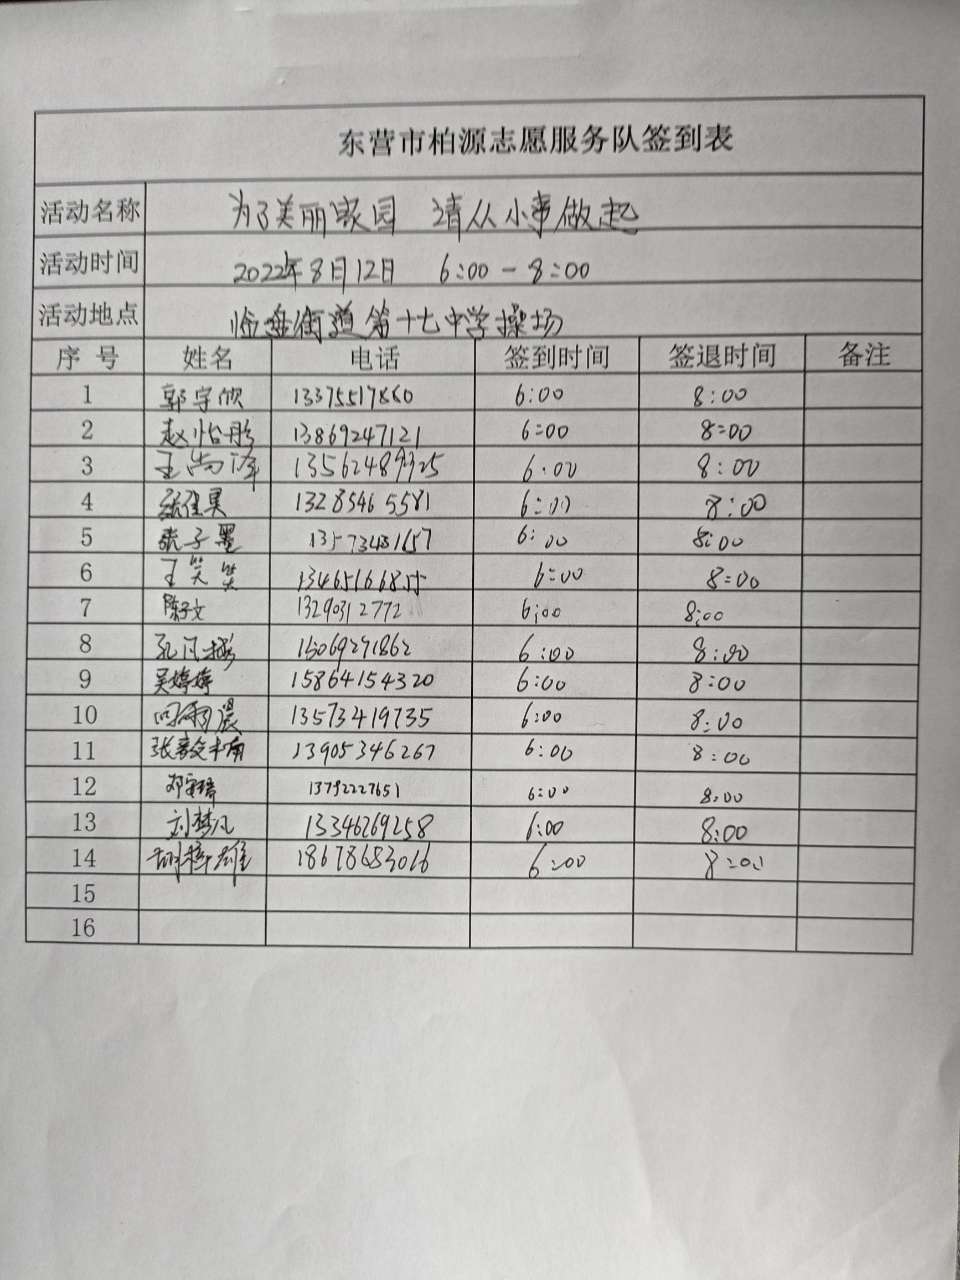 东营市柏源志愿服务队签到表
活动名称 为了美丽家园 请从小事做起
活动时间 2022年8月12日 6:00-8:00
活动地点 临盘街道第十七中学操场
序号 姓名 电话 签到时间 签退时间 备注
1 郭宇欣 13375517860 6:00 8:00
2 赵怡彤 13869247121 6:00 8:00
3 王尚泽 13562489925 6:00 8:00
4 13285465581 6:00 8:00
5 袁子墨 13573481657 6:00 8:00
6 王笑笑 6:00 8:00
7 陈子文 13290312772 6:00 8:00
8 孔凡 15069271862 6:00 8:00
9 吴婷婷 15864154320 6:00 8:00
10 雨晨 13573419735 6:00 8:00
11 张 13905346267 6:00 8:00
12 邓 13792227651 6:00 8:00
13 刘梦凡 13346269258 6:00 8:00
14 胡 雄 18678683016 6:00 8:00
15
16